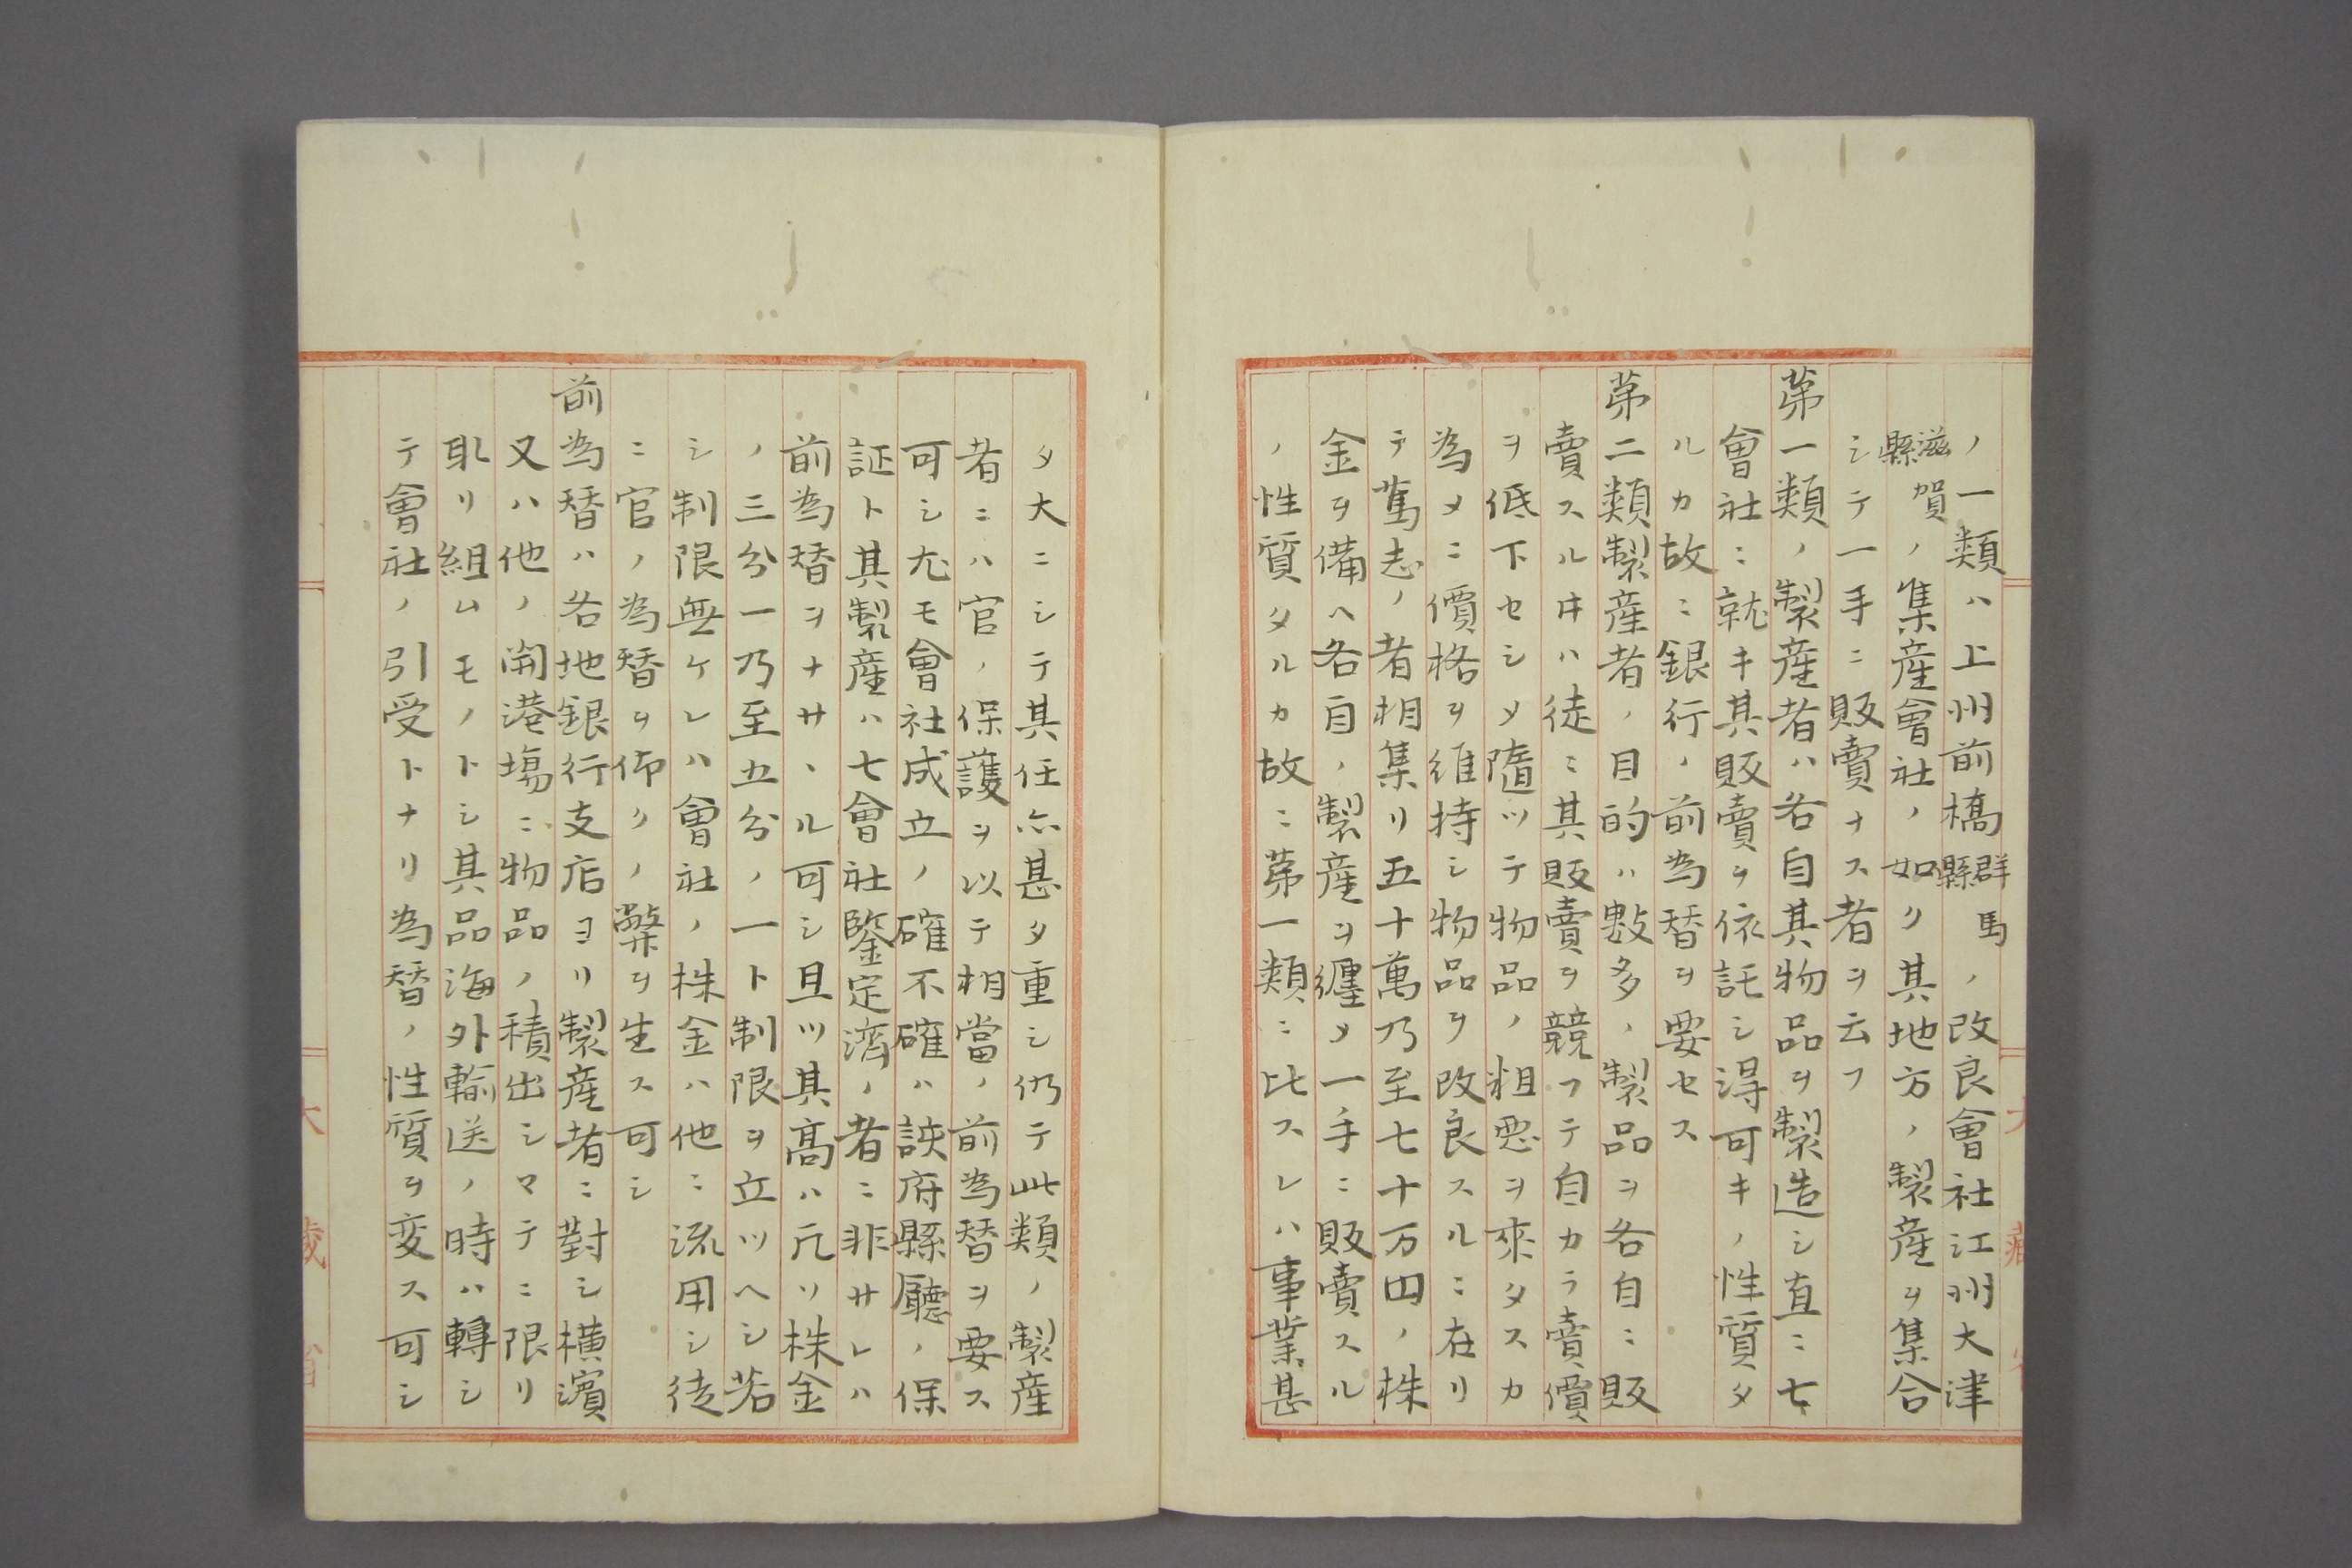 ノ一類ハ上州前橋群馬縣ノ改良會社江州大津
滋賀縣ノ集産會社ノ如ク其地方ノ製産ヲ集合
シテ一手ニ販賣ナス者ヲ云フ
苐一類ノ製産者ハ各自其物品ヲ製造シ直ニ七
會社ニ就キ其販賣ヲ依託シ得可キノ性質タ
ルカ故ニ銀行ノ前為替ヲ要セス
苐二類製産者ノ目的ハ數多ノ製品ヲ各自ニ販
賣スルヰハ徒ニ其販賣ヲ競フテ自カラ賣價
ヲ低下セシメ隨ツテ物品ノ粗悪ヲ來タスカ
為メニ價格ヲ維持シ物品ヲ改良スルニ在リ
テ篤志ノ者相集リ五十萬乃至七十万円ノ株
金ヲ備ヘ各自ノ製産ヲ纏メ一手ニ販賣スル
ノ性質タルカ故ニ苐一類ニ比スレハ事業甚
タ大ニシテ其任亦甚タ重シ仍テ此類ノ製産
者ニハ官ノ保護ヲ以テ相當ノ前為替ヲ要ス
可シ尤モ會社成立ノ確不確ハ該府縣廳ノ保
証ト其製産ハ七會社鑒定濟ノ者ニ非サレハ
前為替ヲナサヽル可シ且ツ其髙ハ凢ソ株金
ノ三分一乃至五分ノ一ト制限ヲ立ツヘシ若
シ制限無ケレハ會社ノ株金ハ他ニ流用シ徒
ニ官ノ為替ヲ仰クノ弊ヲ生ス可シ
前為替ハ各地銀行支店ヨリ製産者ニ對シ横濱
又ハ他ノ開港塲ニ物品ノ積出シマテニ限リ
取リ組ムモノトシ其品海外輸送ノ時ハ轉シ
テ會社ノ引受トナリ為替ノ性質ヲ変ス可シ
大
藏
省
大
藏